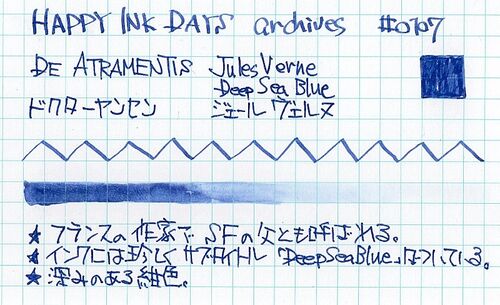 HAPPY INK DAYS archives #0707
DE ATRAMENTIS Jules Verne
Deep Sea Blue
ドクターヤンセン ジュール ヴェルヌ
★ フランスの作家で SFの父とも呼ばれる。
★ インクには珍しく サブタイトル「DeepSeaBlue」はついている。
★ 深みのある紺色。